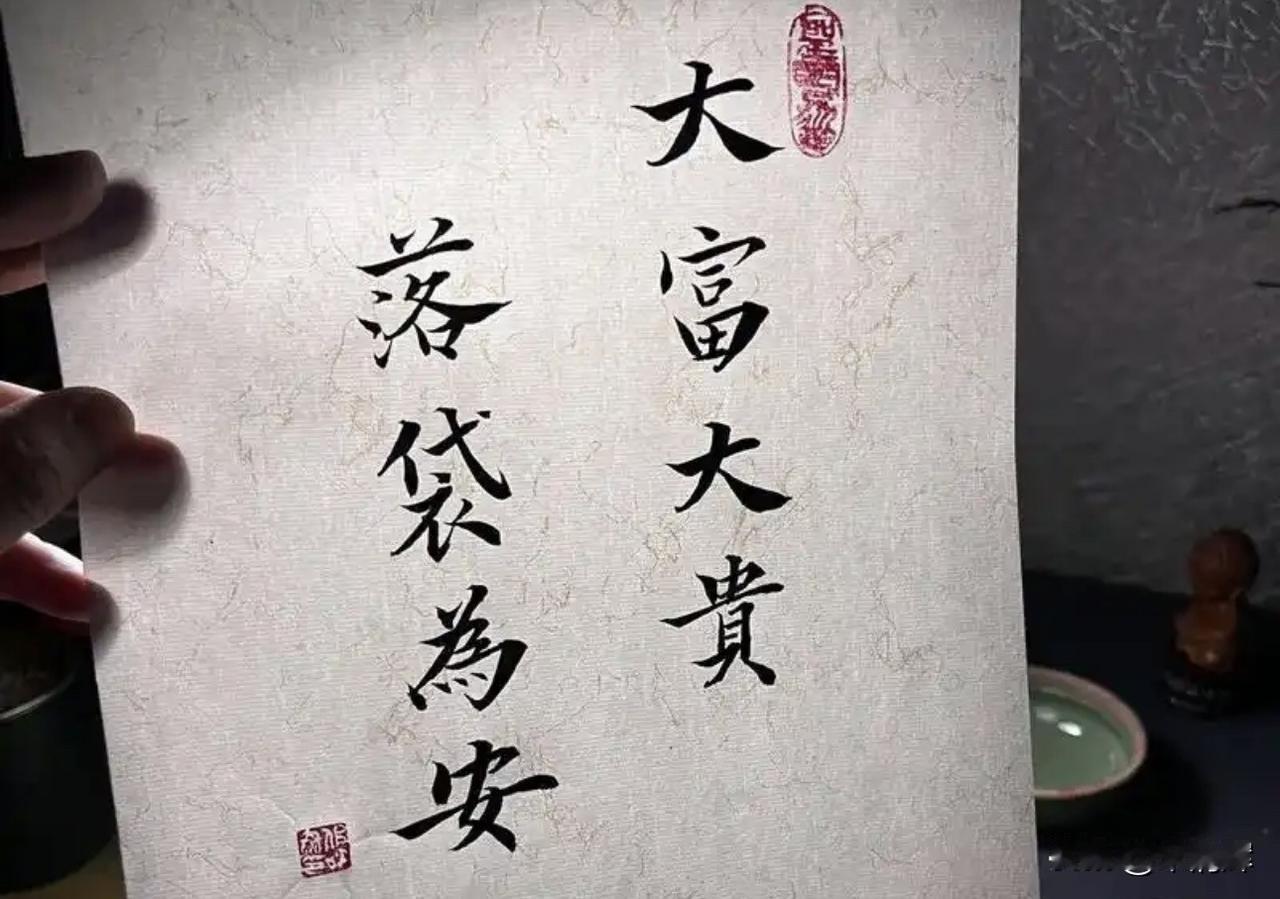 大富大貴
落袋為安